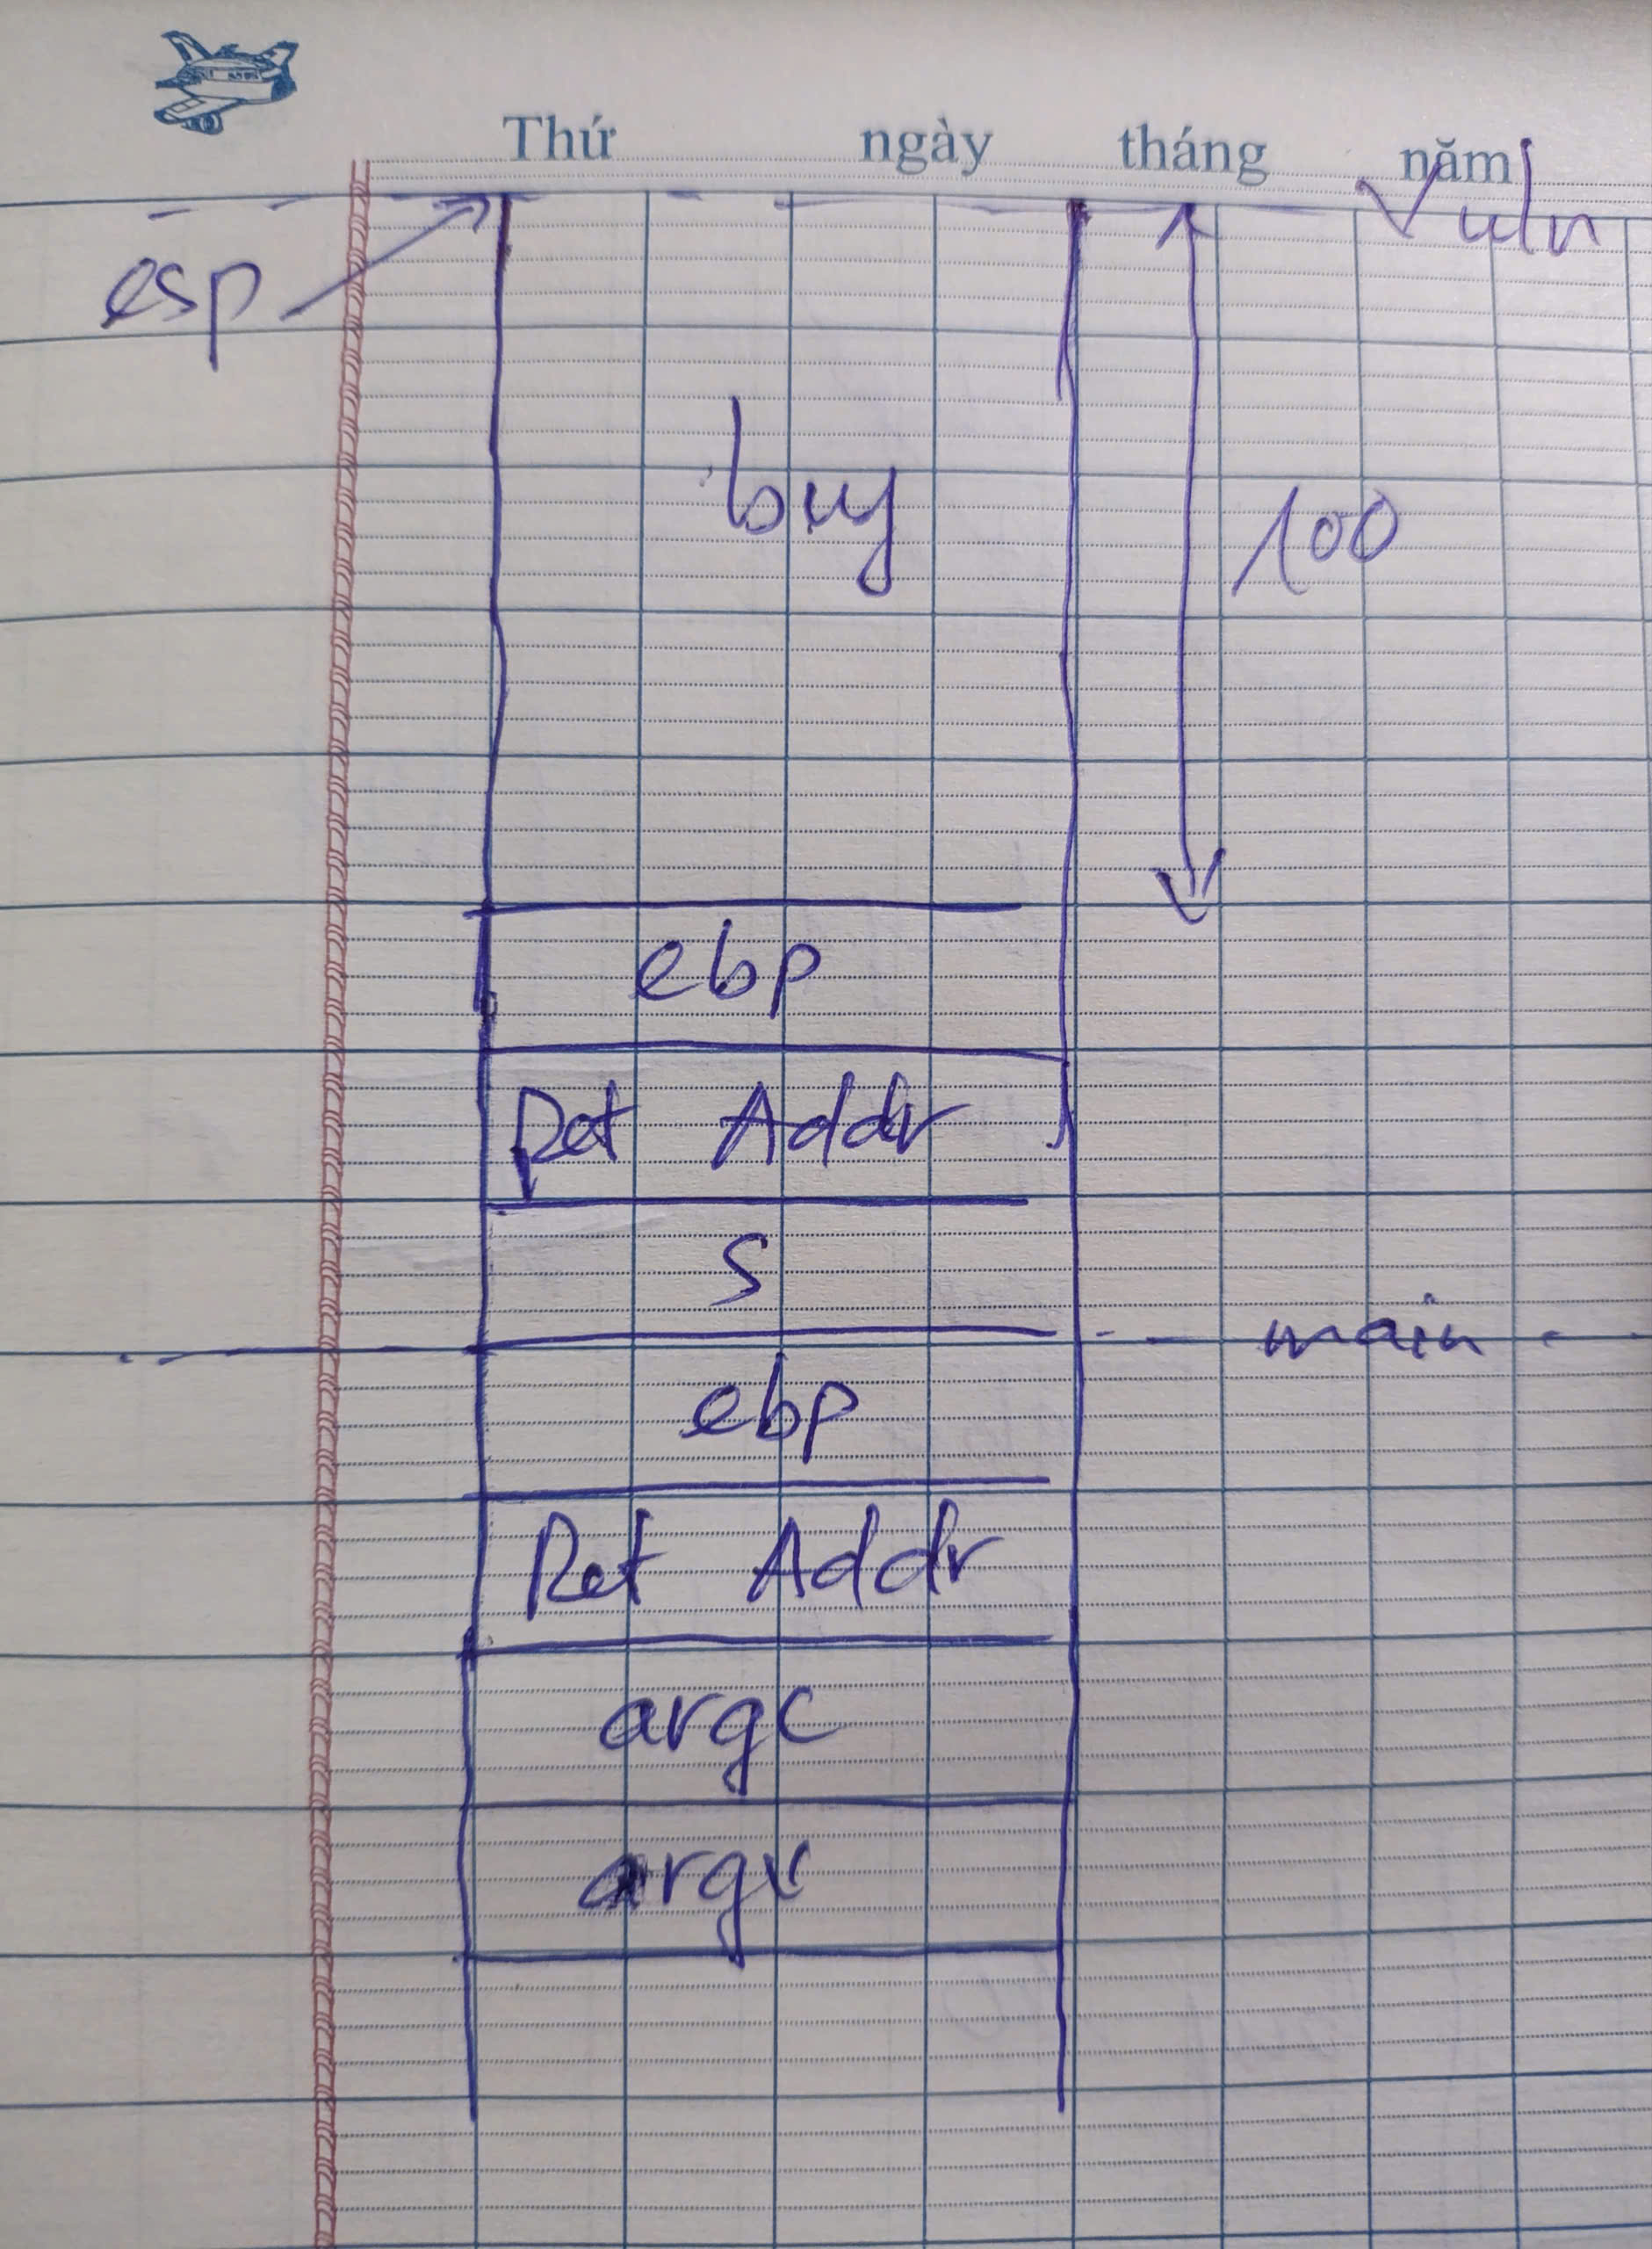 Thứ ngày tháng năm
Vuln
esp
buf
100
ebp
Ret Addr
S
main
ebp
Ret Addr
argc
argv